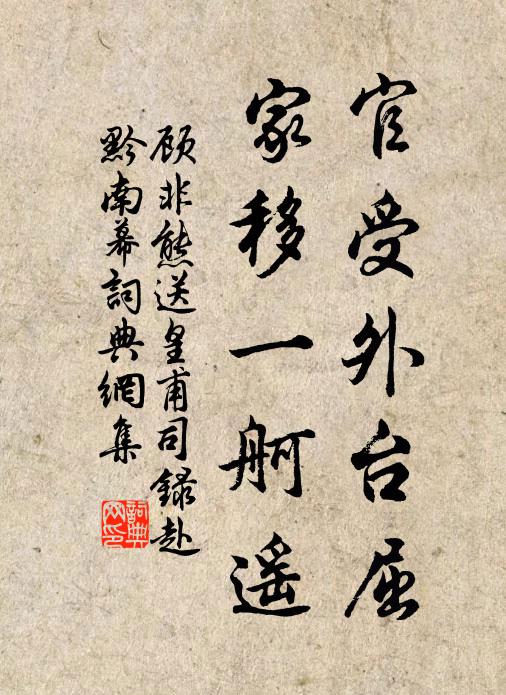 官受外台屈
家移一舸遥
顾非熊送皇甫司録赴
黔南幕詞典網集
詞典
网印